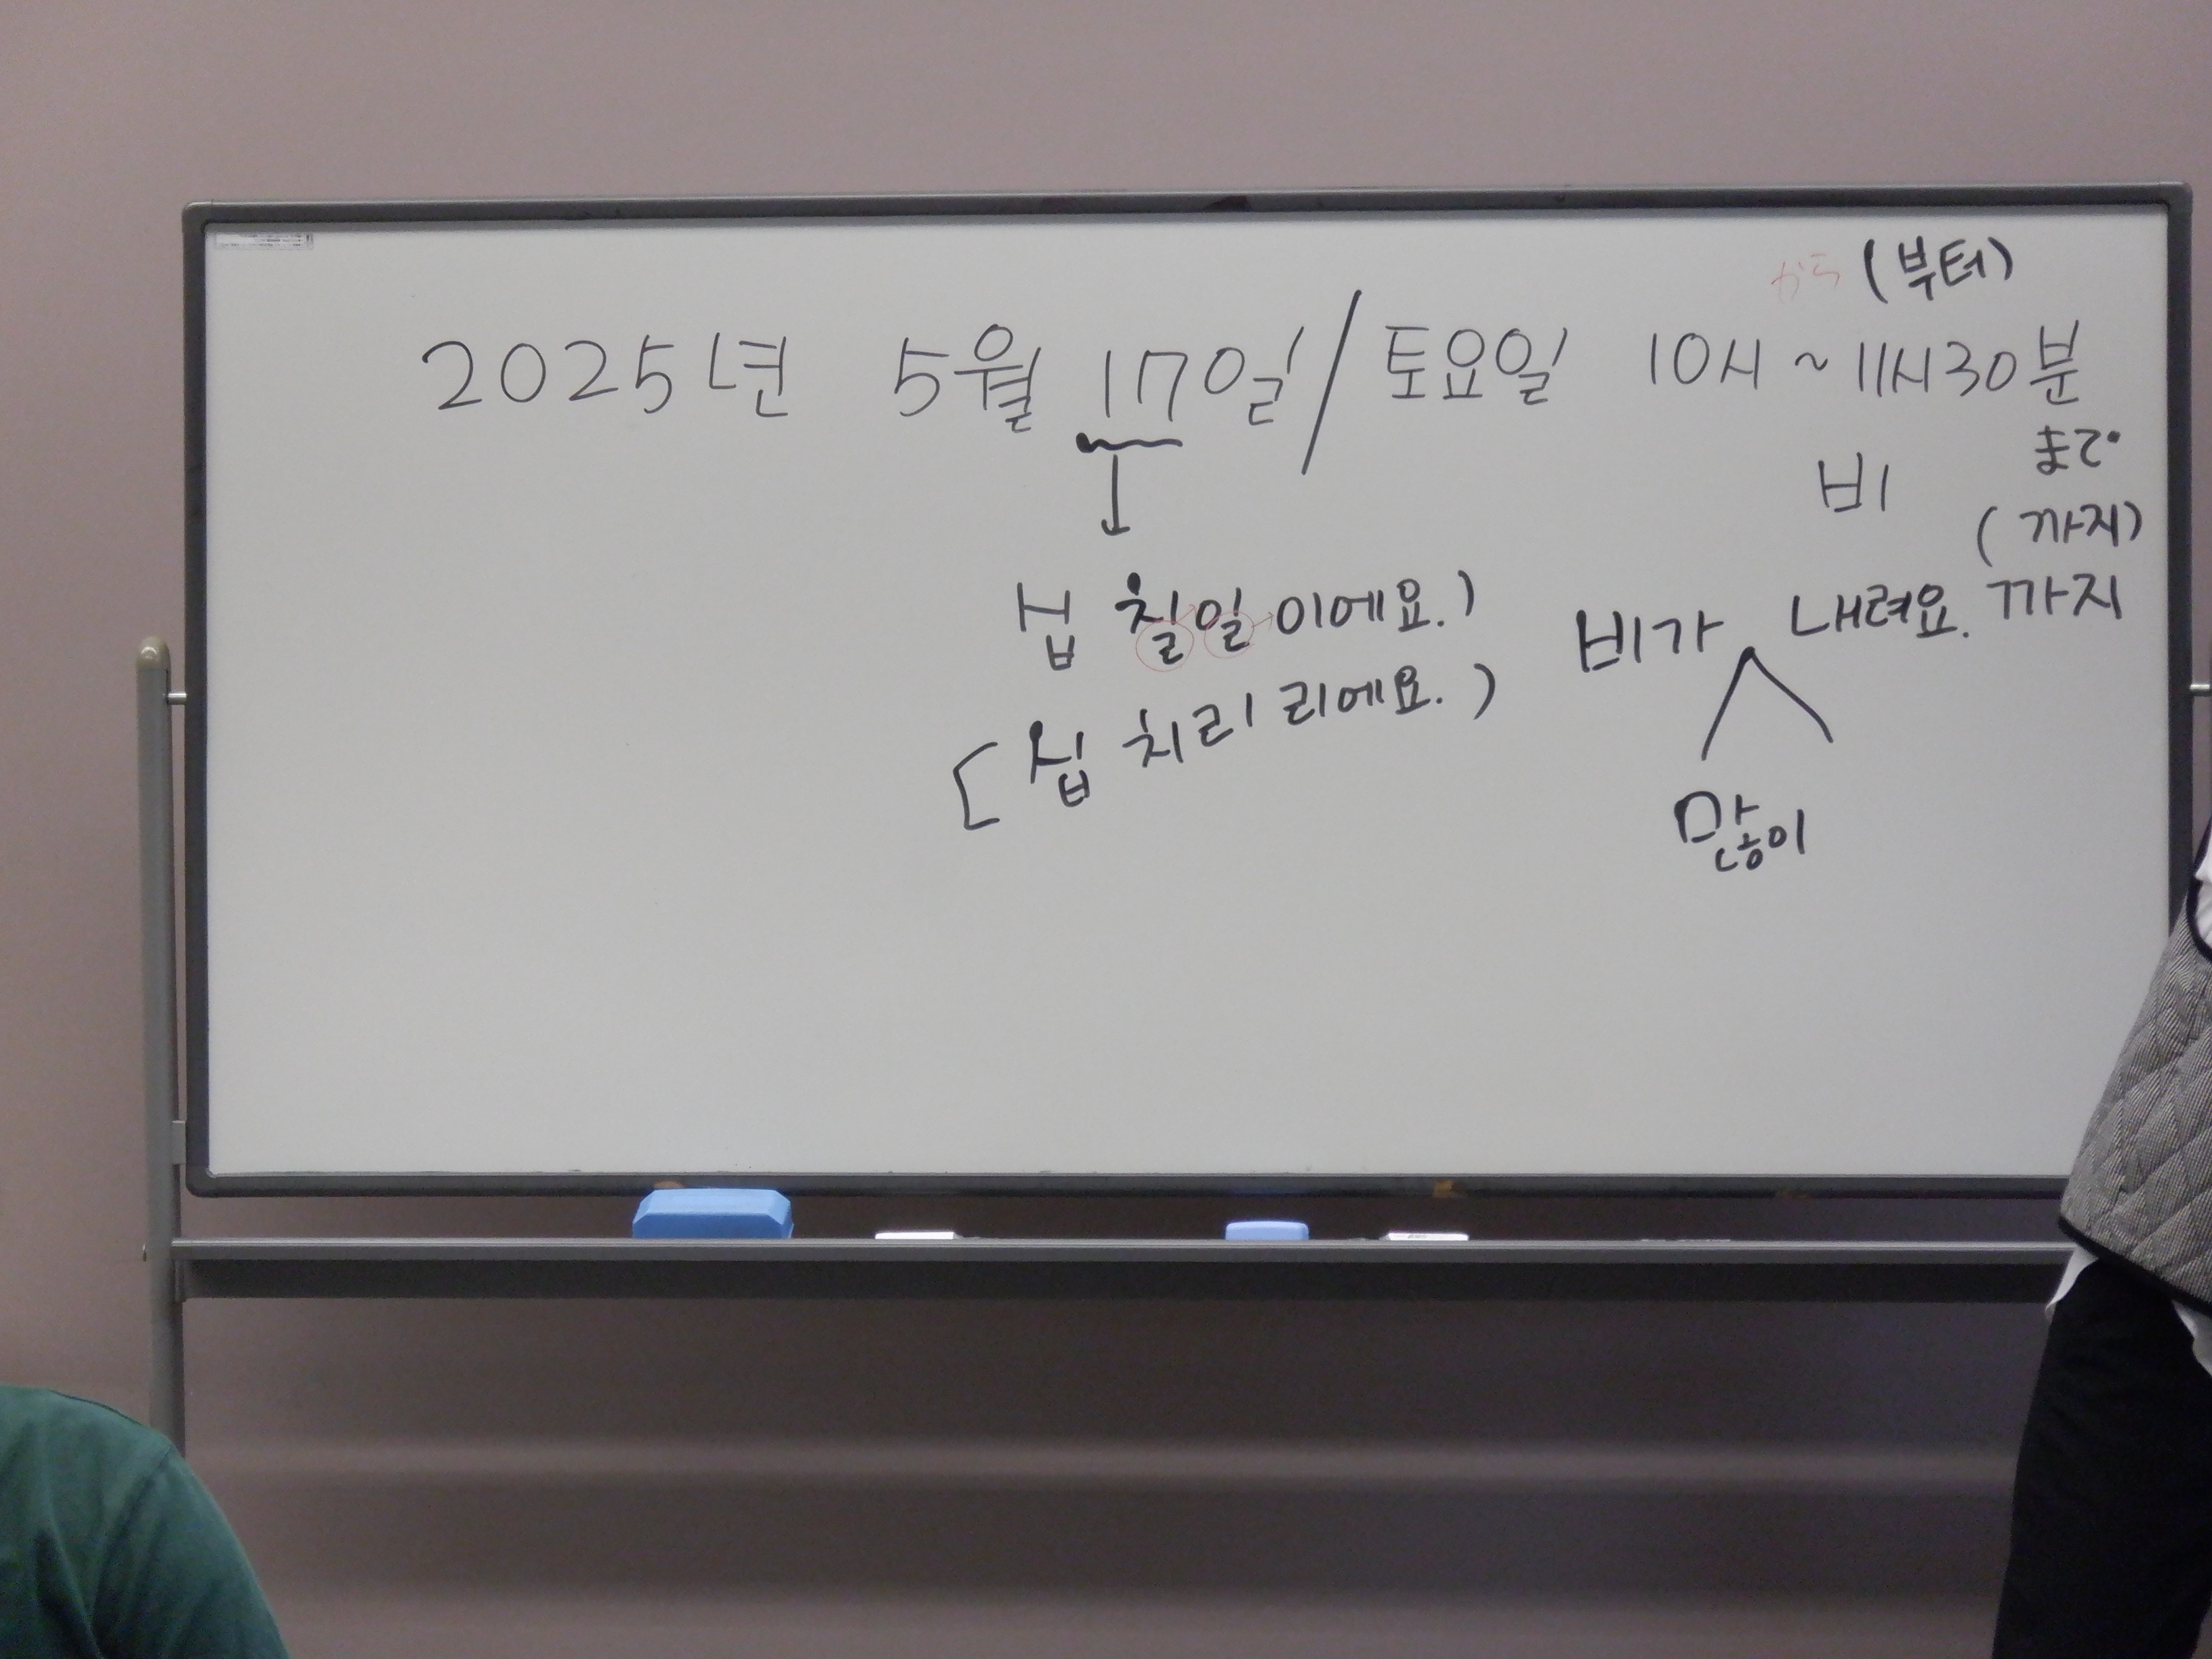 から (부터)
2025년 5월 17일 / 토요일 10시 ~ 11시30분
まで
비
(까지)
십 칠일이에요.)
비가 내려요. 까지
[십 치리리에요.)
많이